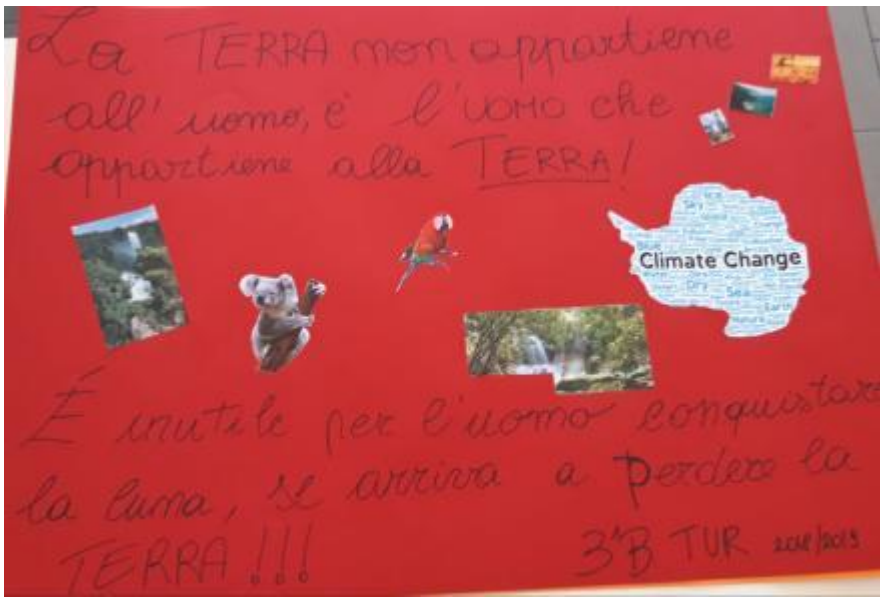 La TERRA non appartiene
all'uomo, è l'UOMO che
appartiene alla TERRA!
Ice
Sky
Blue
Climate Change
Dry Sea
Earth
É inutile per l'uomo conquistare
la luna, se arriva a perdere la
TERRA!!!
3ªB TUR 2018/2019